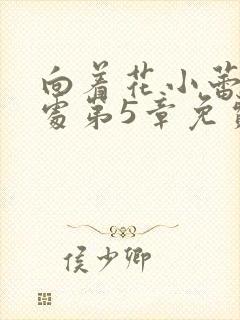 向着花小蕾
处第5章免
侯少卿